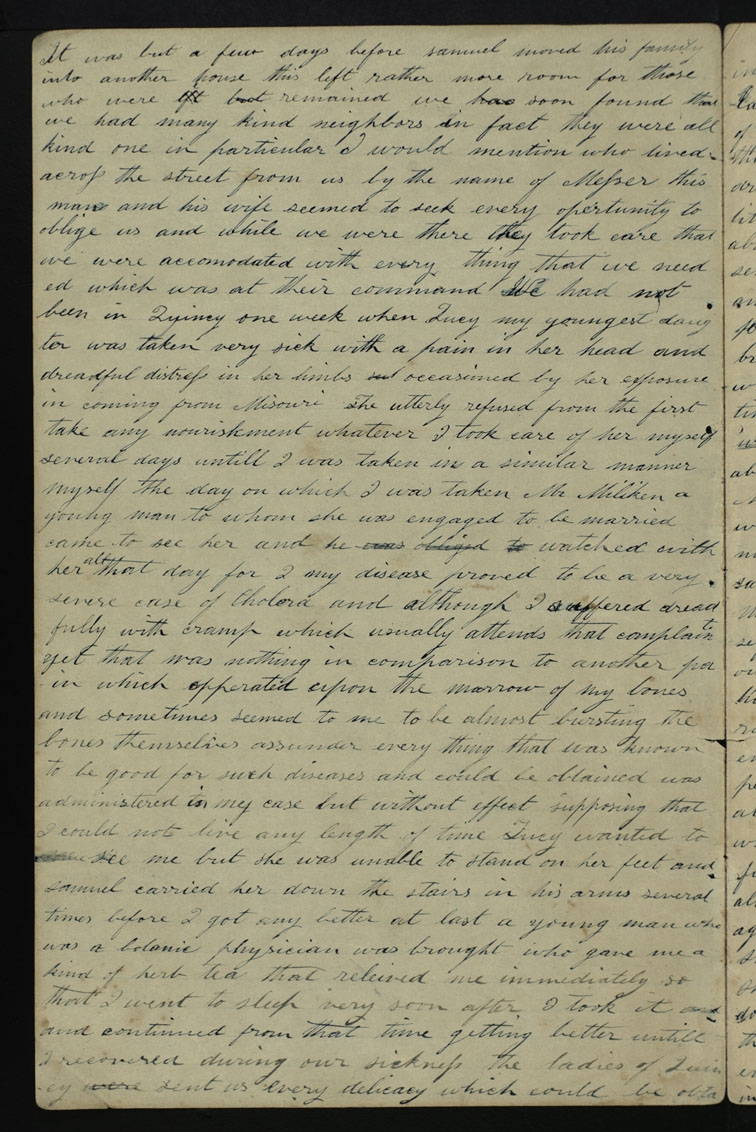 It was but a few days before samuel moved his family
into another house this left rather more room for those
who were left but remained we has soon found that
we had many kind neighbors in fact they were all
kind one in particular I would mention who lived
across the street from us by the name of Messer this
man and his wife seemed to seek every opertunity to
oblige us and while we were there they took care that
we were accomodated with every thing that we need
ed which was at their command We had not
been in Quincy one week when Lucy my youngest daug
ter was taken very sick with a pain in her head and
dreadful distress in her limbs occasioned by her exposure
in coming from Misouri she utterly refused from the first
take any nourishment whatever I took care of her myself
several days untill I was taken in a similar manner
myself the day on which I was taken Mr Miliken a
young man to whom she was engaged to be married
came to see her and he was obliged to watched with
her all that day for I my disease proved to be a very
severe case of Cholora and although I suffered dread
fully with cramp which usually attends that complaint
yet that was nothing in comparison to another pa
in which opperated upon the marrow of my bones
and sometimes seemed to me to be almost bursting the
bones themselves assunder every thing that was known
to be good for such diseases and could be obtained was
administered in my case but without effect supposing that
I could not live any length of time Lucy wanted to
see me but she was unable to stand on her feet and
samuel carried her down the stairs in his arms several
times before I got any better at last a young man who
was a botanic physician was brought who gave me a
kind of herb tea that releived me immediately so
that I went to sleep very soon after I took it and
and continued from that time getting better untill
I recovered during our sickness the ladies of Quin
cy were sent us every delicacy which could be obta